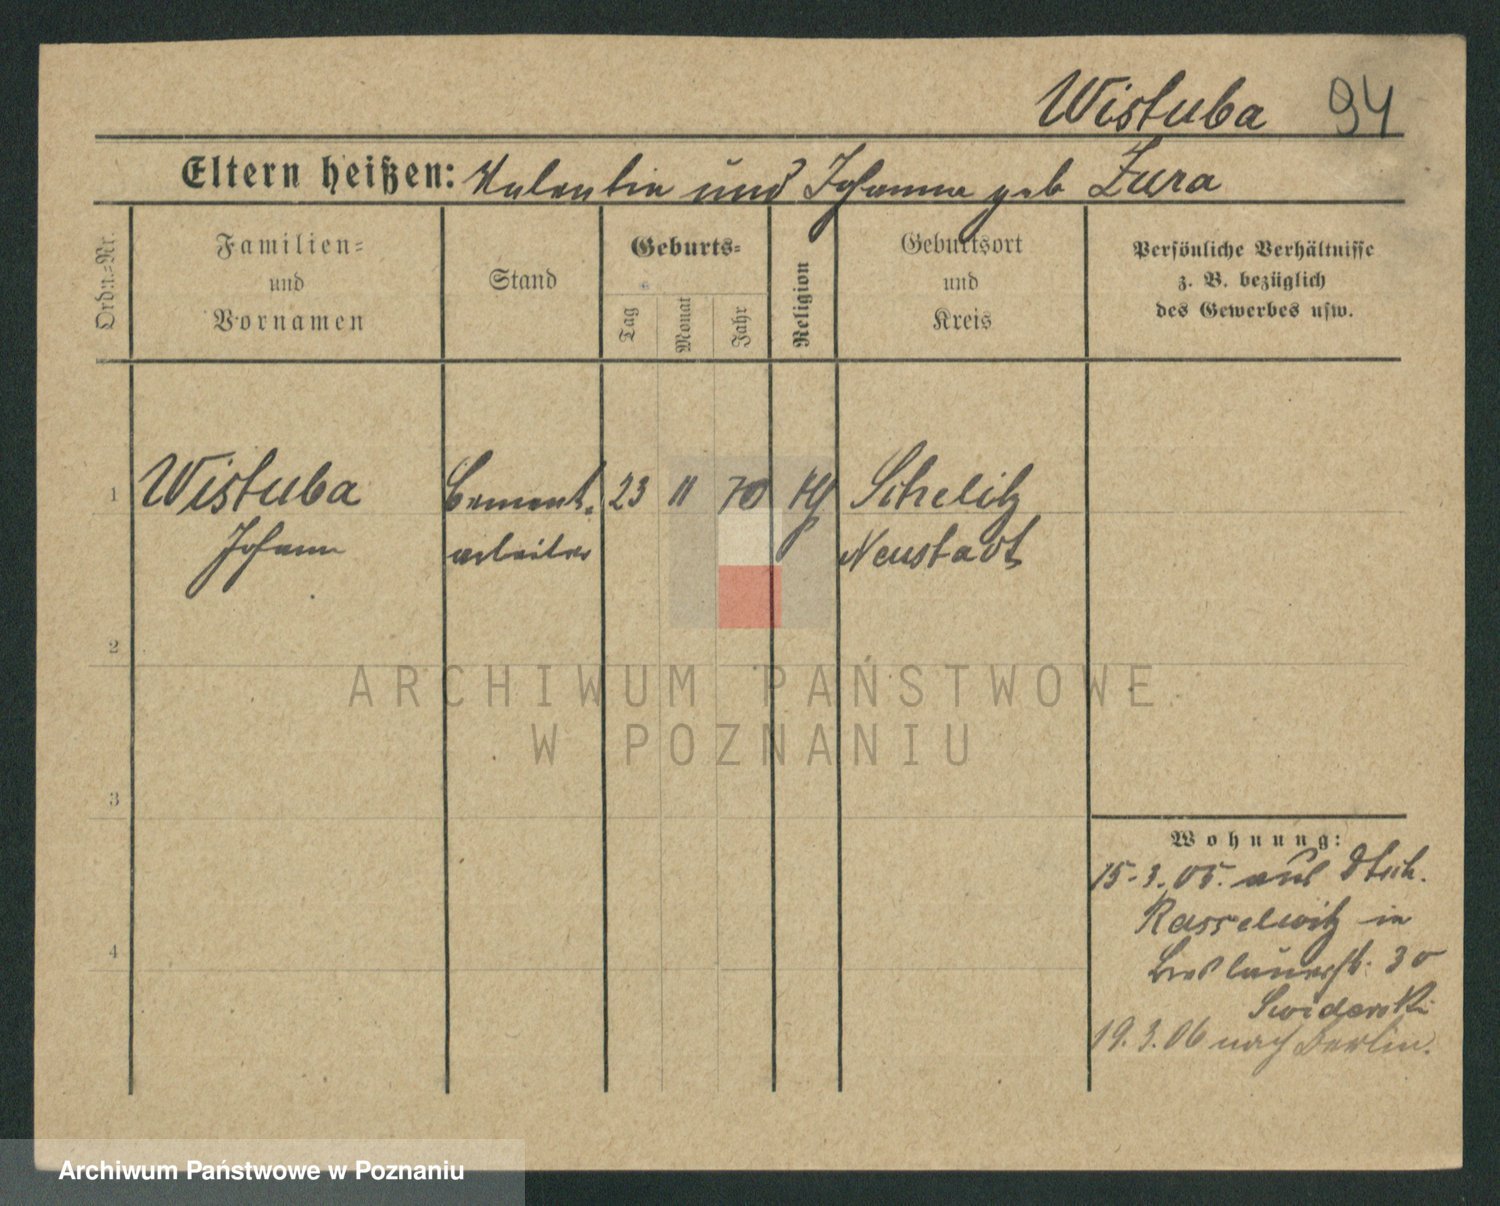 Wistuba 94
Eltern heißen: Valentin und Johanna geb Zura
Ordn.=Nr.
Familien=
und
Vornamen
Stand
Geburts=
Tag
Monat
Jahr
Religion
Geburtsort
und
Kreis
Persönliche Verhältnisse
z. B. bezüglich
des Gewerbes usw.
1 Wistuba Cement= 23 11 70 kg Schelitz
Johann arbeiter Neustadt
2
3
4
Wohnung:
15.3.05. aus Dtsch.
Rasselwitz in
Breslauerstr. 30
Swiderski
19.3.06 nach Berlin.
ARCHIWUM PAŃSTWOWE
W POZNANIU
Archiwum Państwowe w Poznaniu